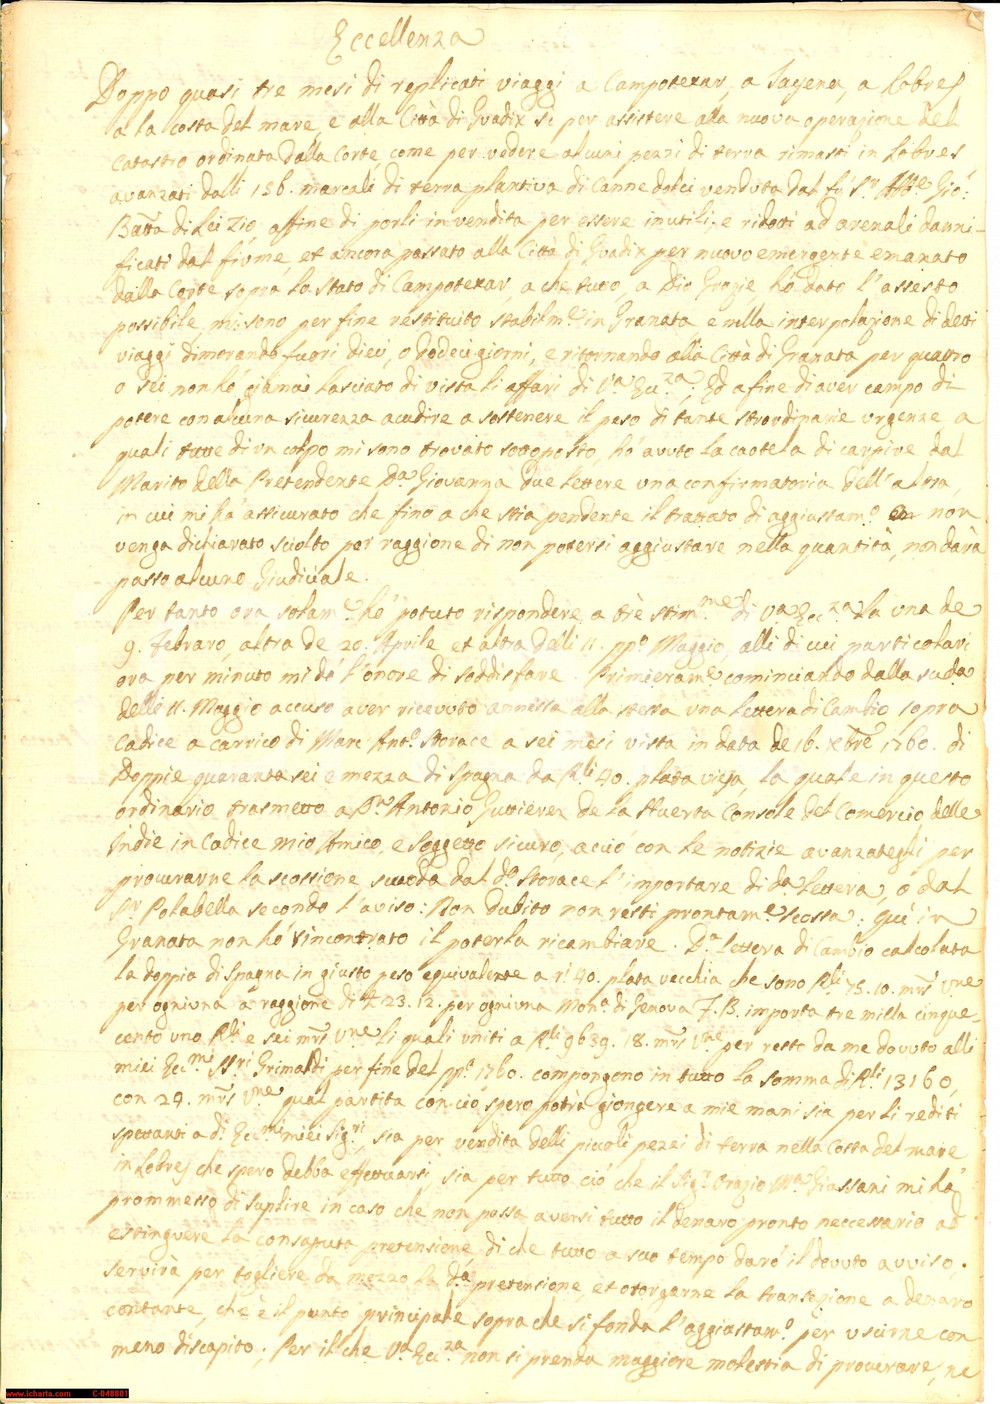 Eccellenza
Doppo quasi tre mesi di replicati viaggi a Campotexar, a Jayena, a Lobres
a la costa del mare, e alla Città di Guadix si per assistere alla nuova operazione del
Catastro ordinata dalla Corte come per vedere alcuni pezzi di terra rimasti in Lobres
avanzati dalli 156. marcali di terra plantiva di Canne dolci venduta dal fù Sr. Abbe Gio:
Batta di Lei Zio, affine di porli in vendita per essere inutili, e ridotti ad arenali danni-
ficati dal fiume, et ancora passato alla Città di Guadix per nuovo emergente emanato
dalla Corte sopra lo Stato di Campotexar, a che tutto, a Dio Grazie, hò dato l'assesto
possibile, mi sono per fine restituito stabilmte. in Granata e nella interpolazione di detti
viaggi dimorando fuori dieci, o dodeci giorni, e ritornando alla Città di Granata per quattro
o sei non hò giamai lasciato di vista li affari di Va. Ecza.; Ed a fine di aver campo di
potere con alcuna sicurezza acudire a sostenere il peso di tante straordinarie urgenze, a
quali tutte di un colpo mi sono trovato sottoposto, hò avuto la cautela di carpire dal
Marito della Pretendente Da. Giovanna due lettere una confirmatoria dell'altra,
in cui mi hà assicurato che fino a che stia pendente il trattato di aggiustamo. non
venga dichiarato sciolto per raggione di non potersi aggiustare nella quantità, non darà
passo alcuno Giudiciale.
Per tanto ora solame. hò potuto rispondere a trè stimme. di Va. Ecza. la una de
9. Febraro, altra de 20. Aprile et altra delli 11. ppo. Maggio, alli di cui particolari
ora per minuto mi dò l'onore di soddisfare. Primierame. cominciando dalla suda.
delli 11. Maggio accuso aver ricevuto annessa alla stessa una lettera di Cambio sopra
Cadice a carrico di Marc Anto. Storace a sei mesi vista in data de 16. Xbre 1760. di
Doppie quaranta sei e mezza di Spagna da Rli. 40. plata vieja, la quale in questo
ordinario trasmetto a Dn. Antonio Guttierez de la Huerta Console del Comercio delle
Indie in Cadice mio Amico, e soggetto sicuro, acciò con le notizie avanzategli per
procurarne la scossione scuoda dal do. Storace l'importare di da. lettera, o dal
Sr. Polabella secondo l'aviso: Non dubito non resti prontame. scossa: Quì in
Granata non hò rincontrato il poterla ricambiare. Da. lettera di Cambio calcolata
la doppia di Spagna in giusto peso equivalente a ri. 40. plata vecchia che sono Rli. 75. 10. mrs. Vne
per ogniuna a raggione di 23. 12. per ogniuna Mona. di Genova F. B. importa tre milla cinque-
cento uno Rli. e sei mrs. Vne li quali uniti a Rli. 9639. 18. mrs. Vne per resto da me dovuto alli
miei Eccmi. SSri. Grimaldi per fine del ppo. 1760. compongono in tutto la somma di Rli. 13160,
con 24. mrs. Vne qual partita con ciò, spero potrà giongere a mie mani sia per li rediti
spettanti a di. Eccmi. miei Sigri., sia per vendita delli piccoli pezzi di terra nella Costa del mare
in Lobres che spero debba effettuarsi, sia per tutto ciò che il Sigr. Orazio Ma. Giassani mi hà
prommesso di suplire in caso che non possa aversi tutto il denaro pronto neccessario ad
estinguere la consaputa pretensione, di che tutto a suo tempo darò il dovuto avviso.
servirà per togliere da mezzo la da. pretensione et otorgarne la transazione a denaro
contante, che è il punto principale sopra che si fonda l'aggiustamo. per uscirne con
meno discapito; Per il che Va. Ecza. non si prenda maggiore molestia di procurare, ne
www.icharta.com C-040801